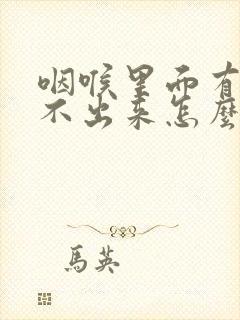 咽喉里面有
不出来怎麼
馬英